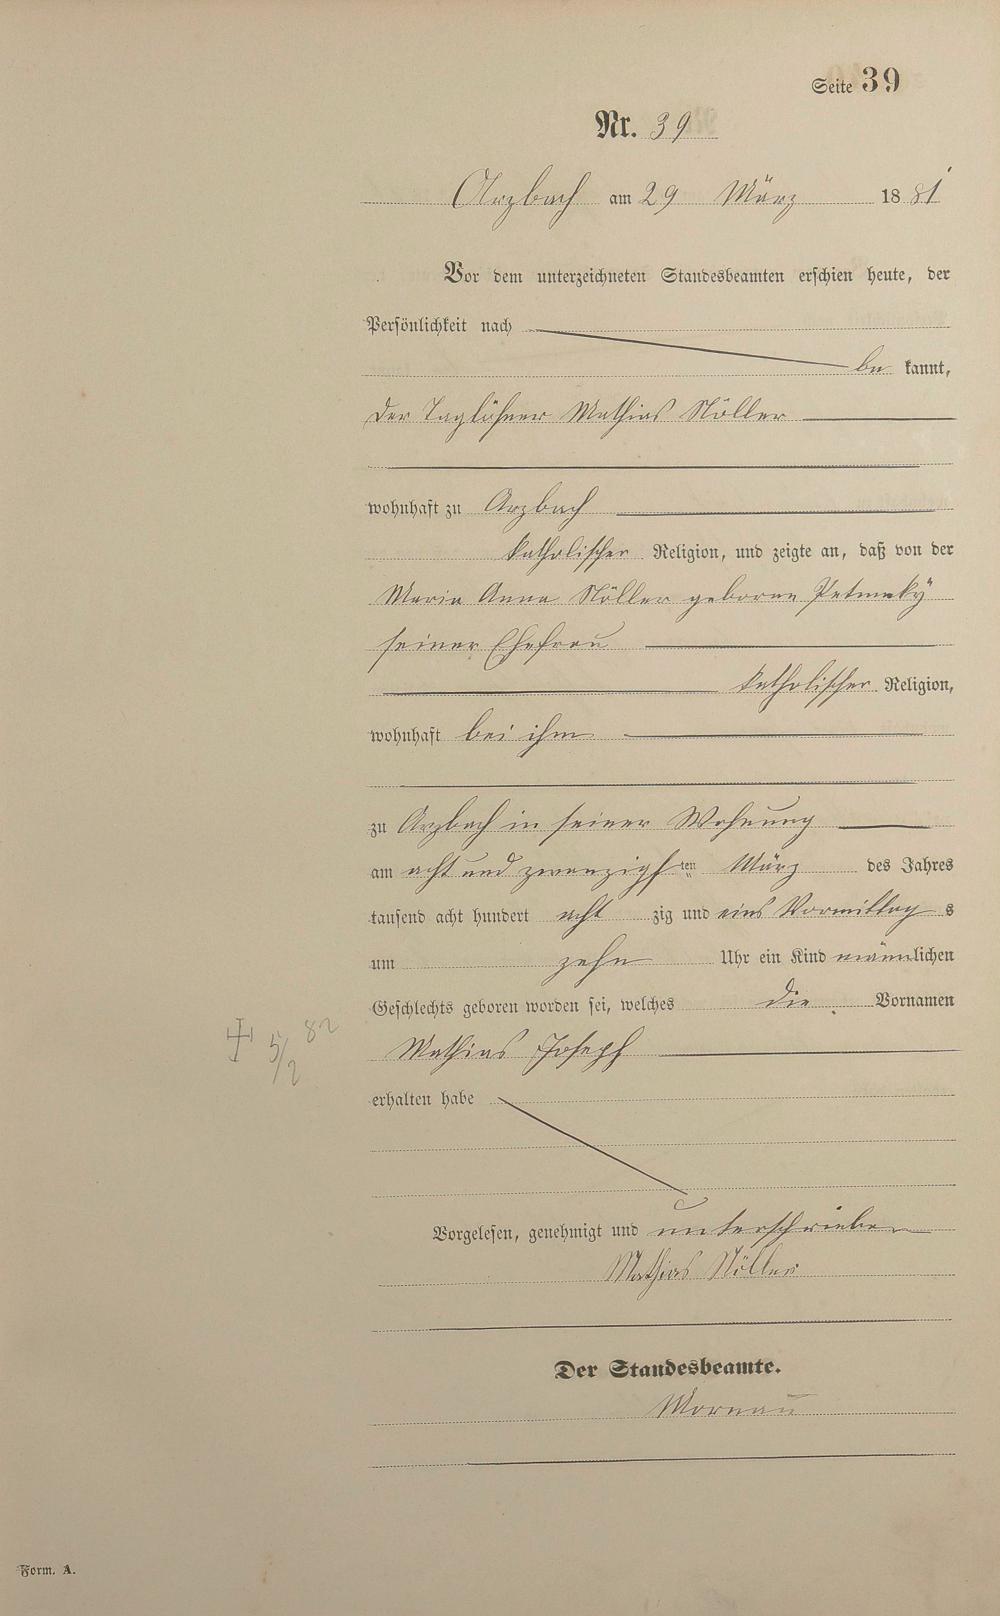 Seite 39
Nr. 39
Arzbach am 29 März 1881
Vor dem unterzeichneten Standesbeamten erschien heute, der
Persönlichkeit nach
be kannt,
der Taglöhner Mathias Nöller
wohnhaft zu Arzbach
katholischer Religion, und zeigte an, daß von der
Maria Anna Nöller geborne
seiner Ehefrau
katholischer Religion,
wohnhaft bei ihm
zu Arzbach in seiner Wohnung
am acht und zwanzigsten März des Jahres
tausend acht hundert acht zig und eins Vormittag s
um zehn Uhr ein Kind männlichen
Geschlechts geboren worden sei, welches die Vornamen
Mathias Joseph
✝ 5/2 82
erhalten habe
Vorgelesen, genehmigt und unterschrieben
Mathias Nöller
Der Standesbeamte.
Form. A.